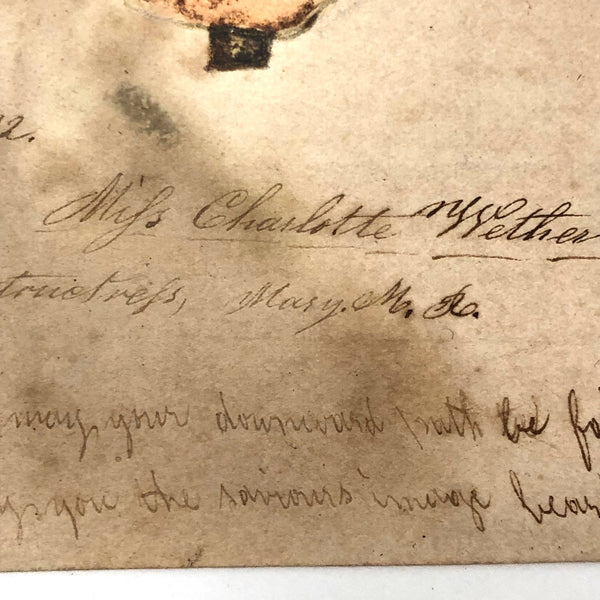 2.
Miſs Charlotte Wether
tructreſs, Mary. M. R.
may your downward path be fa
you the saviours image bear